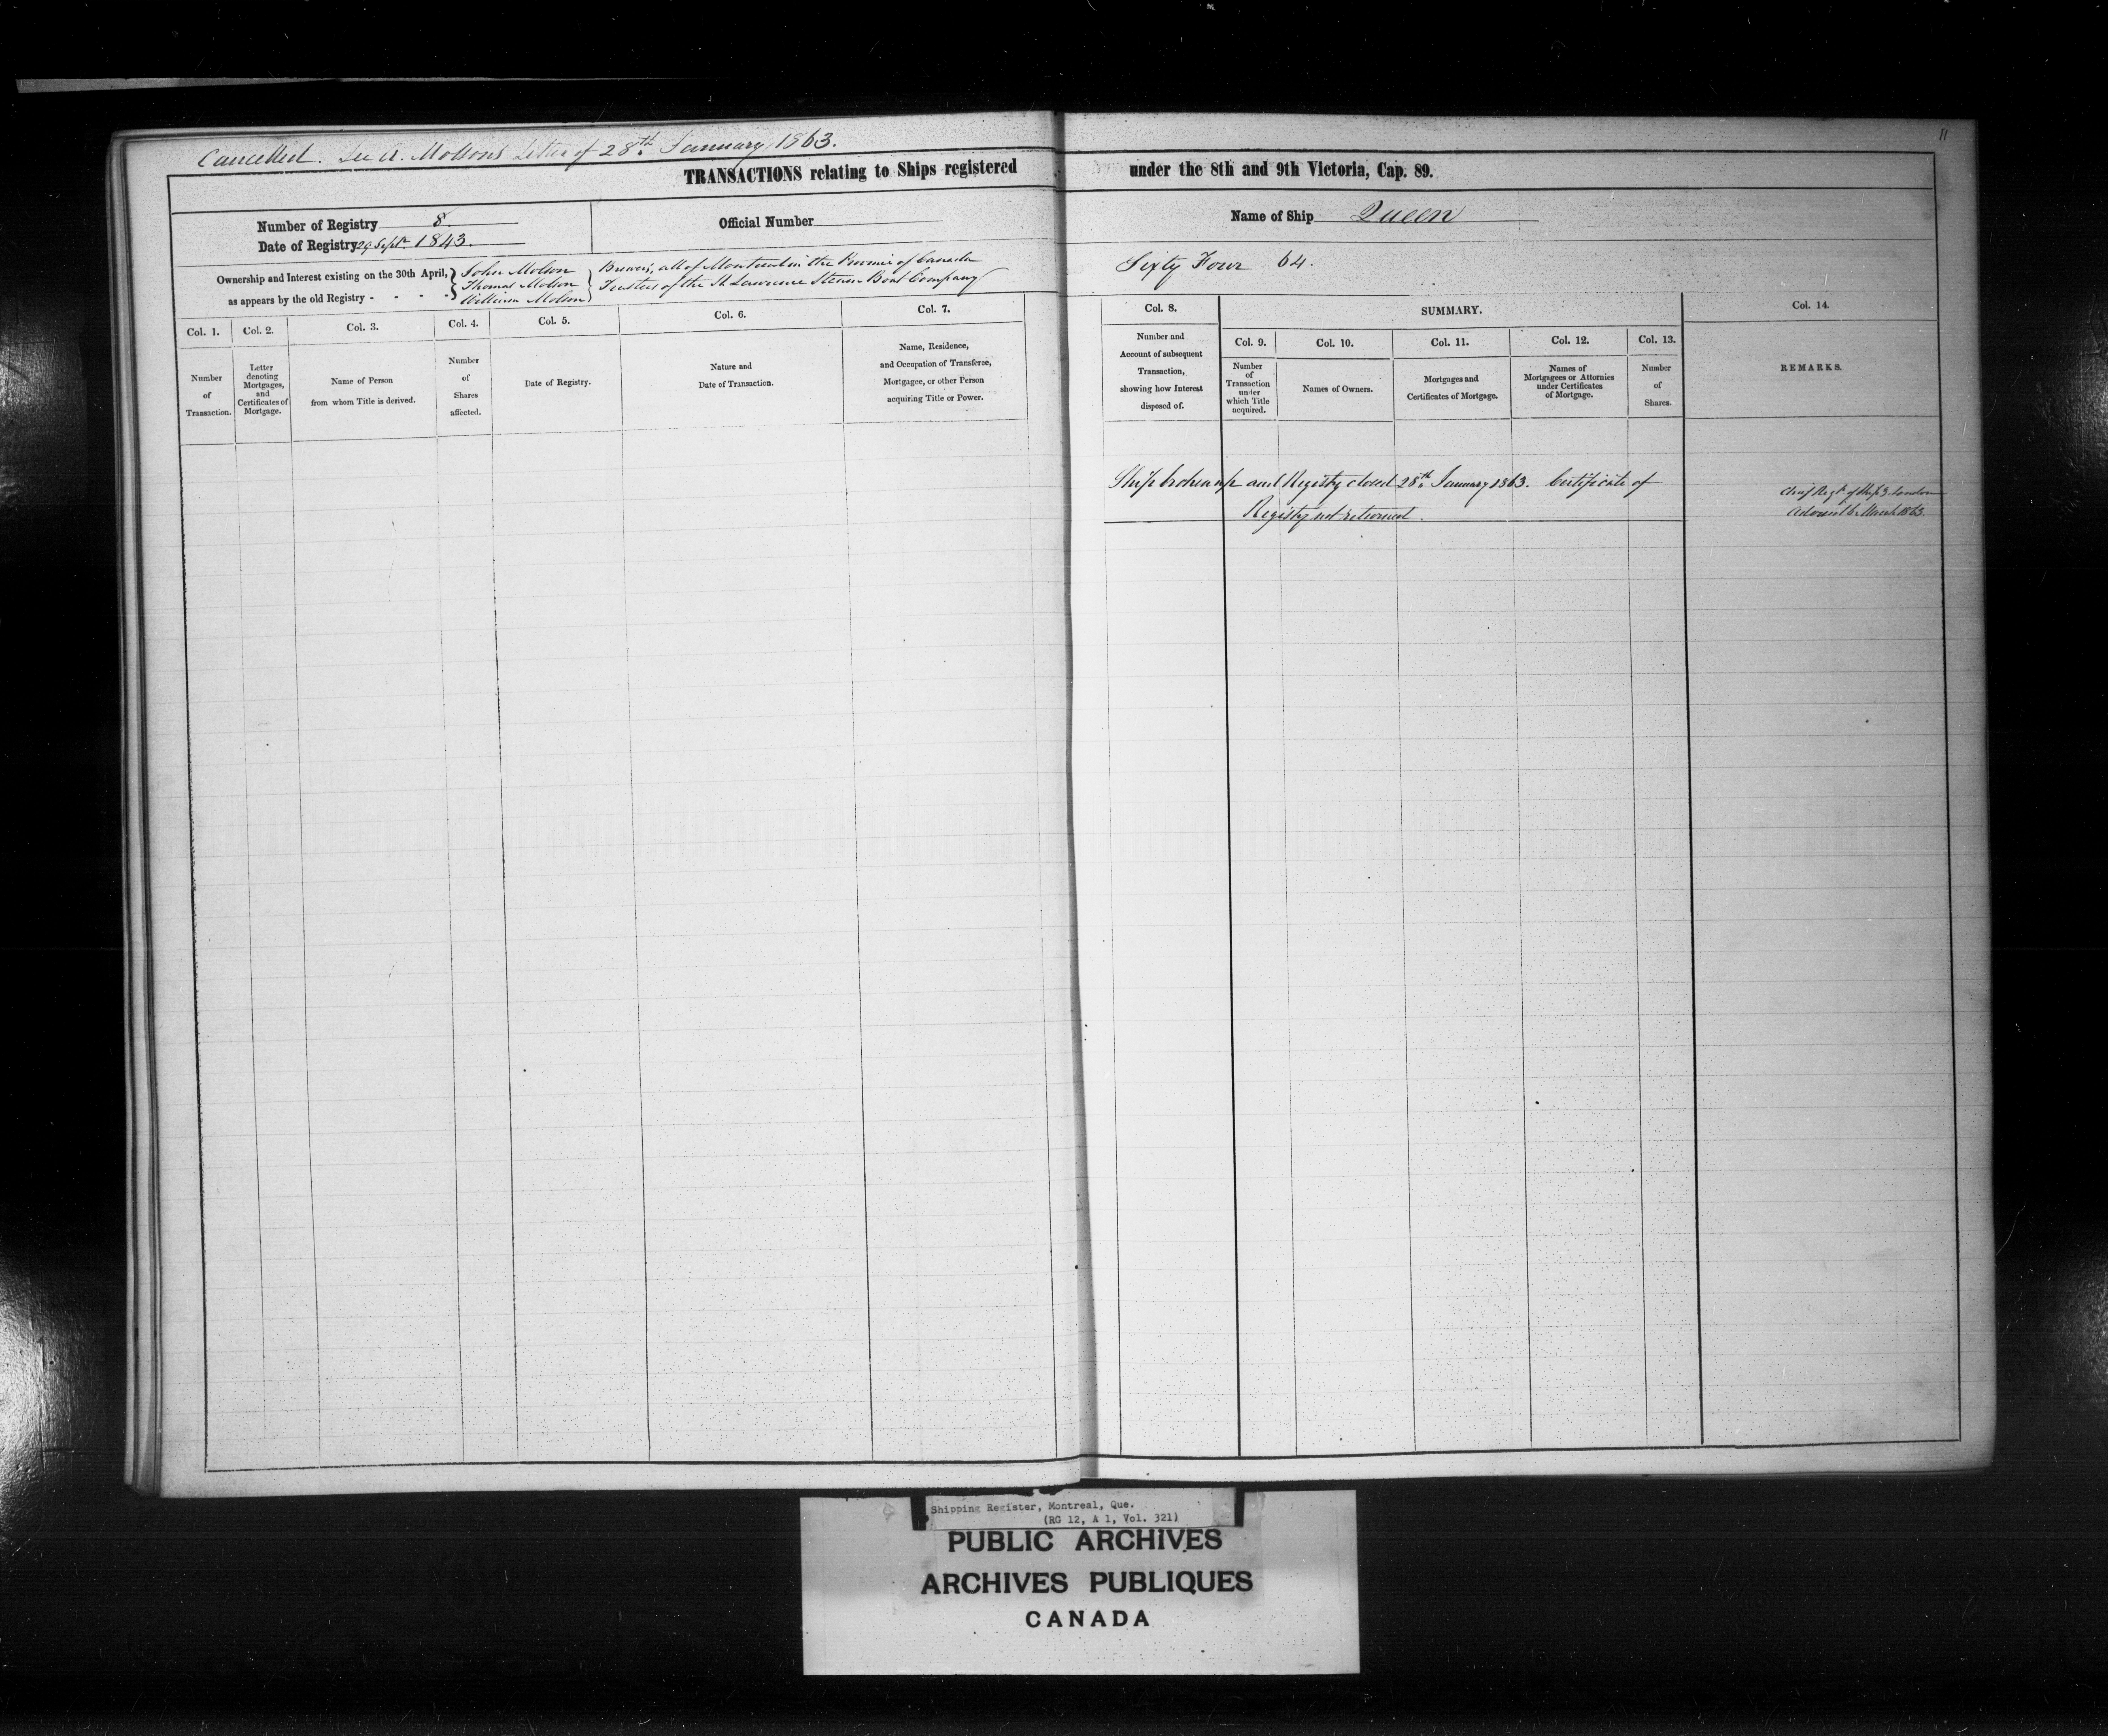 11
Cancelled. See A. Molsons Letter of 28th January 1863.
TRANSACTIONS relating to Ships registered under the 8th and 9th Victoria, Cap. 89.
Number of Registry 8.
Date of Registry 29 Septr 1843.
Official Number
Name of Ship Queen
Ownership and Interest existing on the 30th April,
as appears by the old Registry - - - -
John Molson
Thomas Molson
William Molson
Brewers, all of Montreal in the Province of Canada
Trustees of the St Lawrence Steam Boat Company
Sixty Four 64.
Col. 1.
Number
of
Transaction.
Col. 2.
Letter
denoting
Mortgages,
and
Certificates of
Mortgage.
Col. 3.
Name of Person
from whom Title is derived.
Col. 4.
Number
of
Shares
affected.
Col. 5.
Date of Registry.
Col. 6.
Nature and
Date of Transaction.
Col. 7.
Name, Residence,
and Occupation of Transferee,
Mortgagee, or other Person
acquiring Title or Power.
Col. 8.
Number and
Account of subsequent
Transaction,
showing how Interest
disposed of.
SUMMARY.
Col. 9.
Number
of
Transaction
under
which Title
acquired.
Col. 10.
Names of Owners.
Col. 11.
Mortgages and
Certificates of Mortgage.
Col. 12.
Names of
Mortgagees or Attornies
under Certificates
of Mortgage.
Col. 13.
Number
of
Shares.
Col. 14.
REMARKS.
Ship broken up and Registry closed 28th January 1863. Certificate of
Registry not returned.
Chief Regr of Ships London
Advised 6 March 1863.
Shipping Register, Montreal, Que.
(RG 12, A 1, Vol. 321)
PUBLIC ARCHIVES
ARCHIVES PUBLIQUES
CANADA